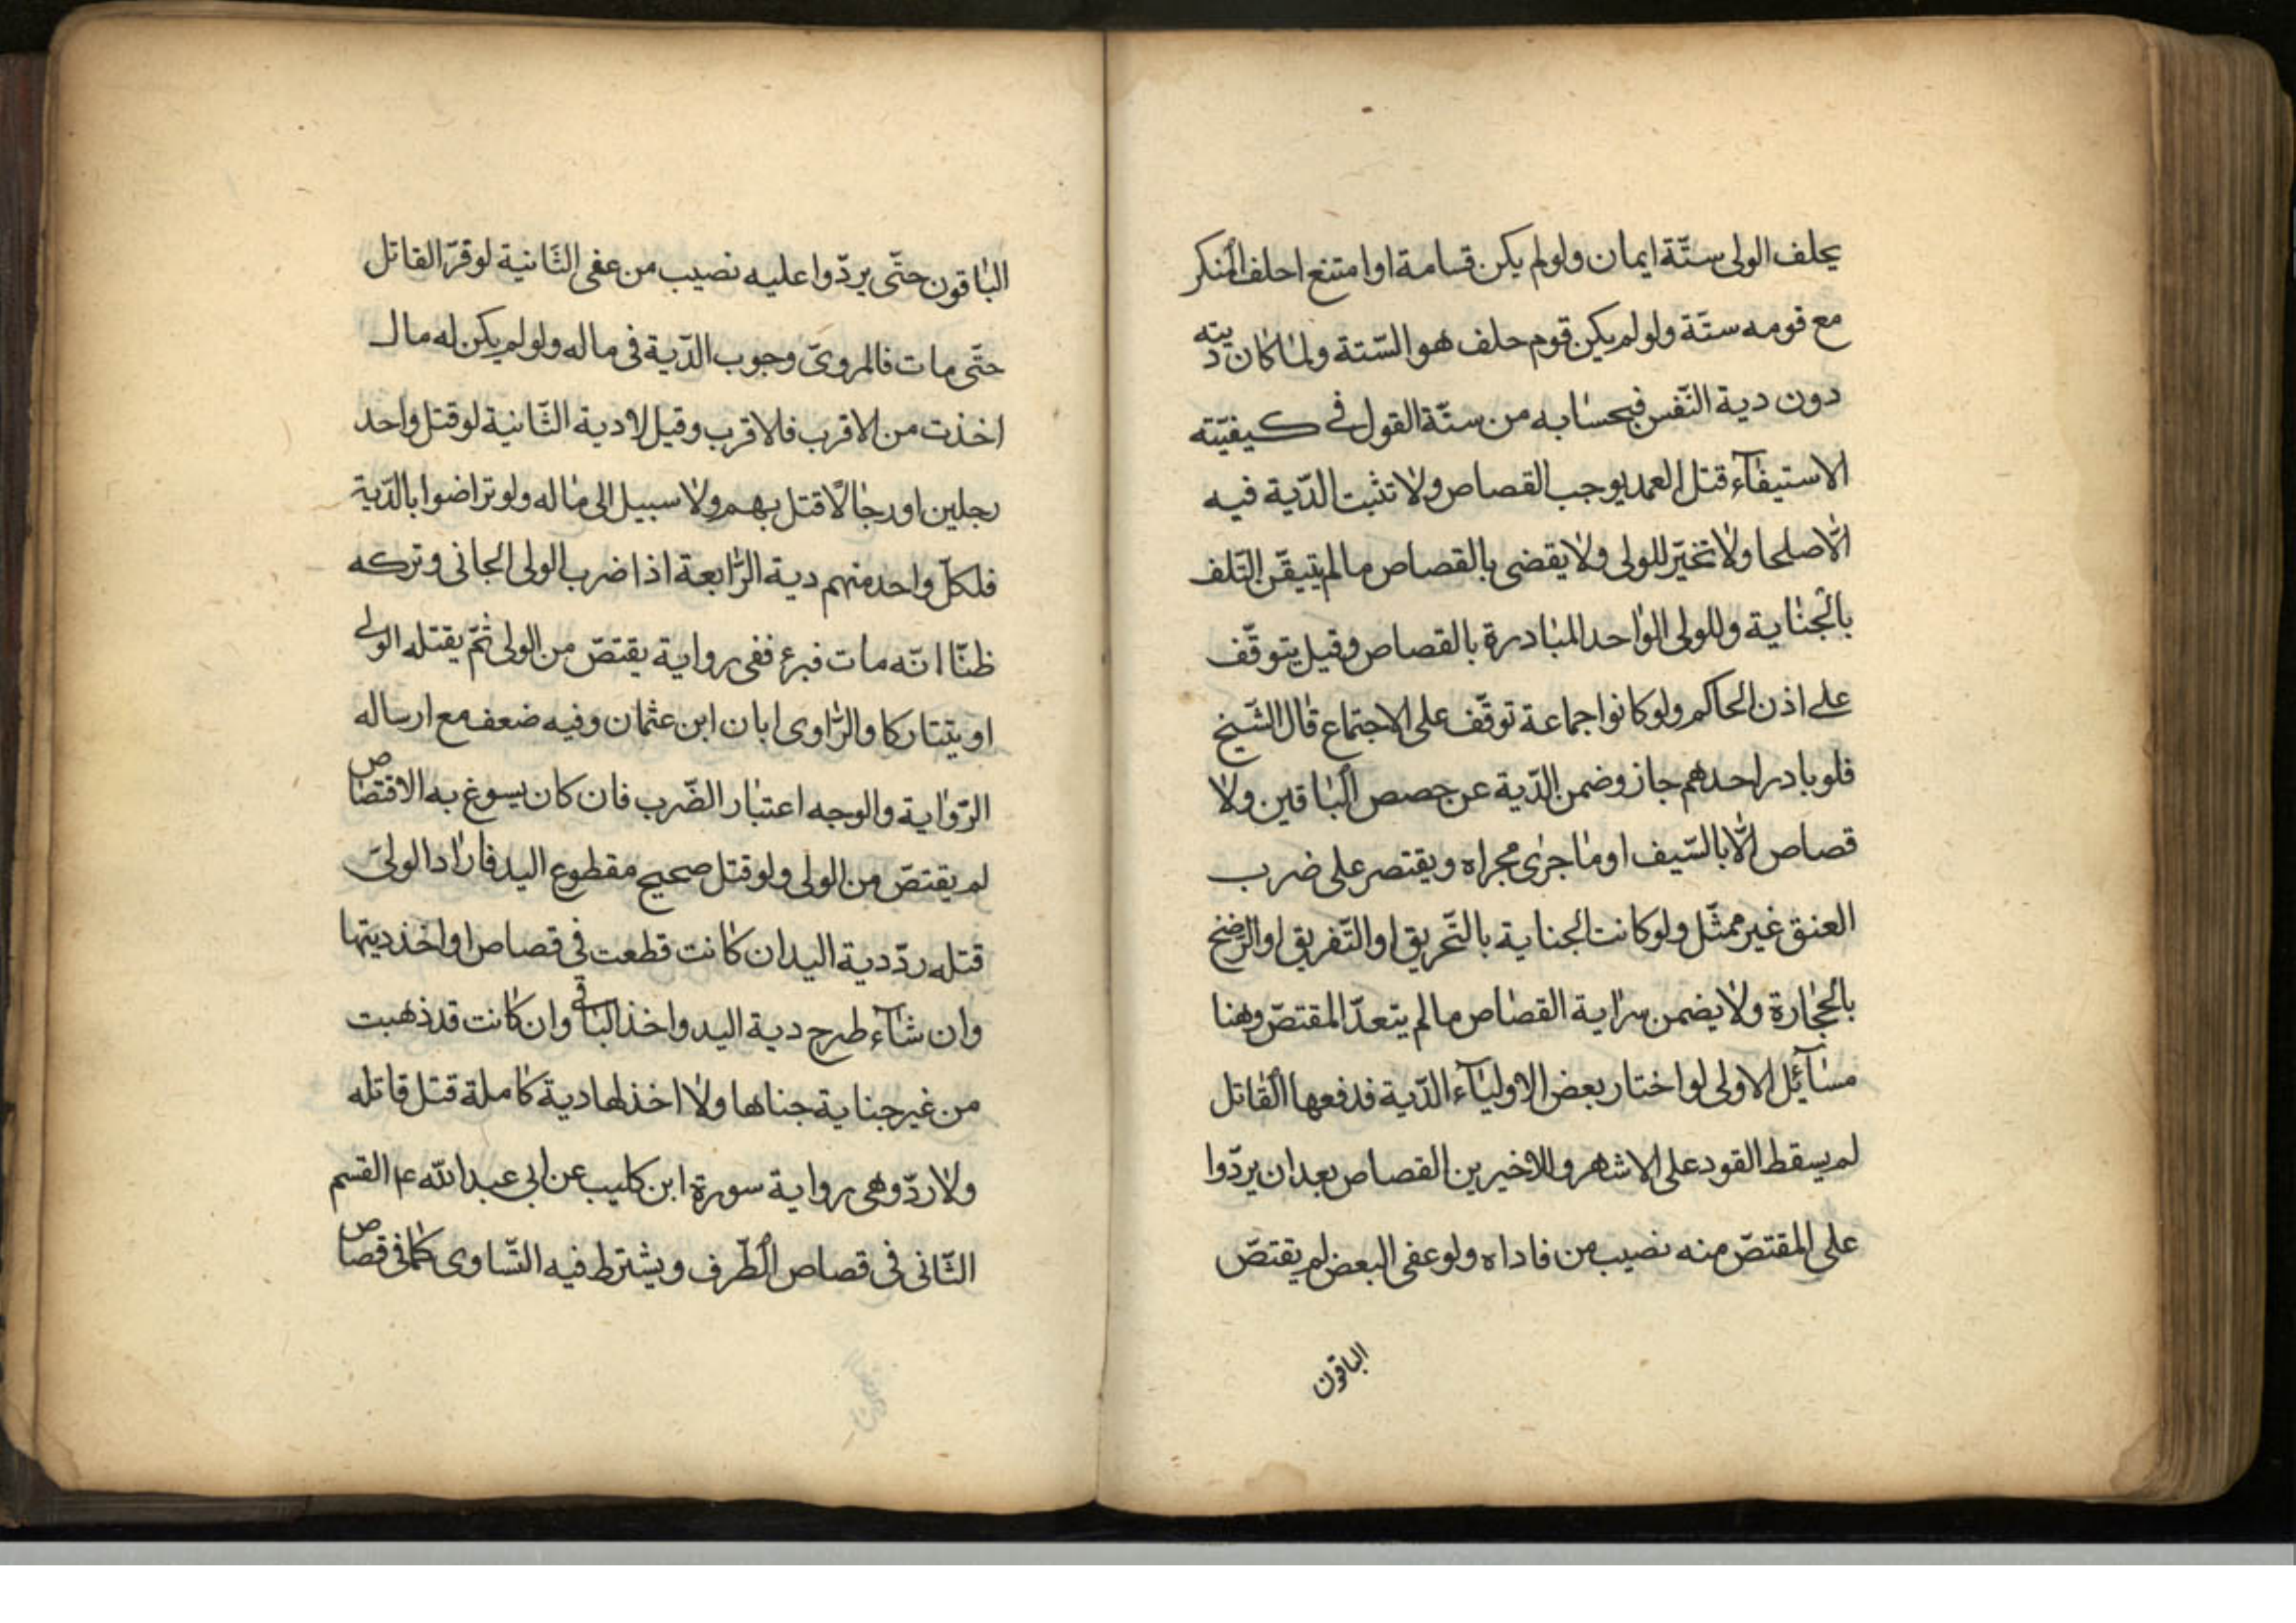 يحلف الولى ستّة ايمان ولو لم يكن قسامة او امتنع احلف المنكر
مع قومه ستّة ولو لم يكن قوم حلف هو السّتة ولما كان ديته
دون دية النّفس فبحسابه من ستّة القول فى كيفيّته
الاستيفآء قتل العمد يوجب القصاص ولا تثبت الدّية فيه
الّا صلحا ولا تخيّر للولى ولا يقضى بالقصاص ما لم يتيقّن التّلف
بالجناية وللولى الواحد المبادرة بالقصاص وقيل يتوقّف
على اذن الحاكم ولو كانوا جماعة توقّف على الاجتماع قال الشّيخ
فلو بادر احدهم جاز وضمن الدّية عن حصص الباقين ولا
قصاص الّا بالسّيف او ما جرى مجراه ويقتصر على ضرب
العنق غير ممثّل ولو كانت الجناية بالتّحريق او التّفريق او الرّضخ
بالحجارة ولا يضمن سراية القصاص ما لم يتعدّ المقتصّ وهنا
مسآئل الاولى لو اختار بعض الاوليآء الدّية فدفعها القاتل
لم يسقط القود على الاشهر وللاخيرين القصاص بعد ان يردّوا
على المقتصّ منه نصيب من فاداه ولو عفى البعض لم يقتصّ
الباقون
الباقون حتّى يردّوا عليه نصيب من عفى الثّانية لو قرّ القاتل
حتّى مات فالمروىّ وجوب الدّية فى ماله ولو لم يكن له مال
اخذت من الاقرب فالاقرب وقيل لا دية الثّانية لو قتل واحد
رجلين او رجالًا قتل بهم ولا سبيل الى ماله ولو تراضوا بالدّية
فلكلّ واحد منهم دية الرّابعة اذا ضرب الولى الجانى وتركه
ظنّا انّه مات فبرء ففى رواية يقتصّ من الولى ثمّ يقتله الولى
او يتتاركا والرّاوى ابان ابن عثمان وفيه ضعف مع ارساله
الرّواية والوجه اعتبار الضّرب فان كان يسوغ به الاقتصاص
لم يقتصّ من الولى ولو قتل صحيح مقطوع اليد فاراد الولىّ
قتله ردّ دية اليد ان كانت قطعت فى قصاص او اخذ ديتها
وان شآء طرح دية اليد واخذ الباقى وان كانت قد ذهبت
من غير جناية جناها ولا اخذ لها دية كاملة قتل قاتله
ولا ردّ وهى رواية سورة ابن كليب عن ابى عبد الله ع القسم
الثّانى فى قصاص الطّرف ويشترط فيه التّساوى كما فى قصاص